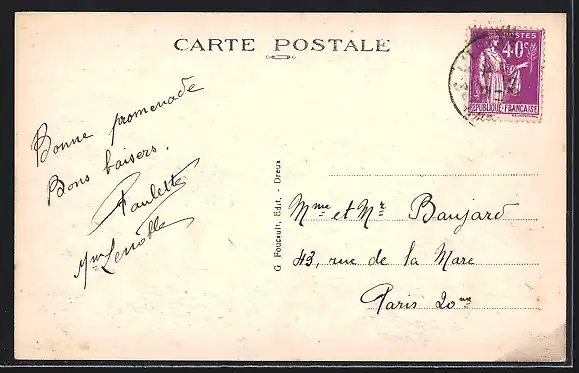 CARTE POSTALE
POSTES
40c
REPUBLIQUE-FRANCAISE
Bonne promenade
Bons baisers.
Paulette
Mme Lenoble
G. Foucault, Edit. - Dreux
Mme et Mr Banjard
43, rue de la Mare
Paris 20me